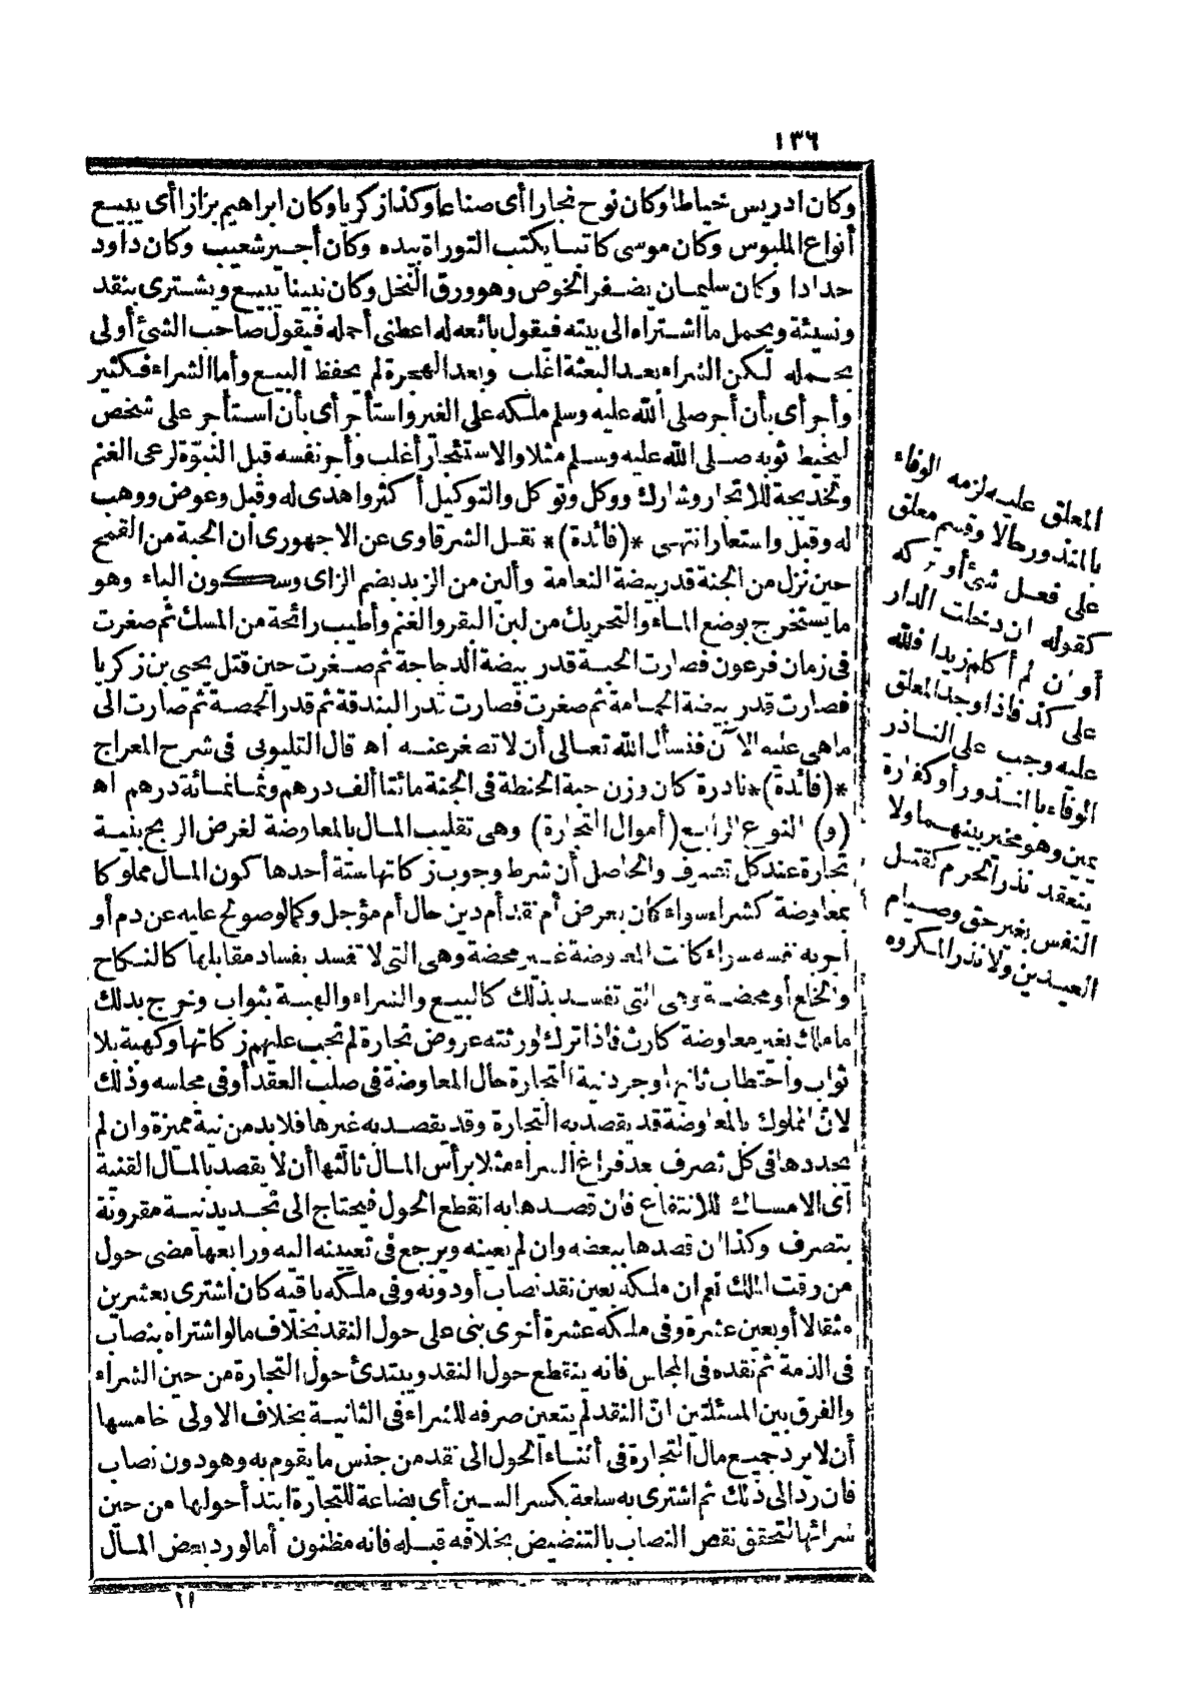 ١٣٦
وكان ادريس خياطا وكان نوح نجارا أى صناعا وكذا زكريا وكان ابراهيم بزازا أى يبيع
أنواع الملبوس وكان موسى كاتبا يكتب التوراة بيده وكان أجير شعيب وكان داود
حدادا وكان سليمان يضفر الخوص وهو ورق النخل وكان نبينا يبيع ويشترى بنقد
ونسيئة ويحمل ما اشتراه الى بيته فيقول بائعه له اعطنى أحمله فيقول صاحب الشئ أولى
بحمله لكن الشراء بعد البعثة أغلب وبعد الهجرة لم يحفظ البيع وأما الشراء فكثير
وأجر أى بأن أجر صلى الله عليه وسلم ملكه على الغير واستأجر أى بأن استأجر على شخص
ليخيط ثوبه صلى الله عليه وسلم مثلا والاستئجار أغلب وأجر نفسه قبل النبوّة لرعى الغنم
وخديجة للاتجار وشارك ووكل وتوكل والتوكيل أكثر واهدى له وقبل وعوض ووهب
له وقبل واستعار انتهى *(فائدة)* نقل الشرقاوى عن الاجهورى أن الحبة من القمح
حين نزل من الجنة قدر بيضة النعامة وألين من الزبد بضم الزاى وسكون الباء وهو
ما يستخرج بوضع الماء والتحريك من لبن البقر والغنم وأطيب رائحة من المسك ثم صغرت
فى زمان فرعون فصارت الحبة قدر بيضة الدجاجة ثم صغرت حين قتل يحيى بن زكريا
فصارت قدر بيضة الحمامة ثم صغرت فصارت قدر البندقة ثم قدر الحمصة ثم صارت الى
ما هى عليه الآن فنسأل الله تعالى أن لا تصغر عنه اه قال القليوبى فى شرح المعراج
*(فائدة)* نادرة كان وزن حبة الحنطة فى الجنة مائتا ألف درهم وثمانمائة درهم اه
(و) النوع الرابع (أموال التجارة) وهى تقليب المال بالمعاوضة لغرض الربح بنية
تجارة عند كل تصرف والحاصل أن شرط وجوب زكاتها ستة أحدها كون المال مملوكا
بمعاوضة كشراء سواء كان بعرض أم نقد أم دين حال أم مؤجل وكما لو صولح عليه عن دم أو
أجر به نفسه سواء كانت المعاوضة غير محضة وهى التى لا تفسد بفساد مقابلها كالنكاح
والخلع أو محضة وهى التى تفسد بذلك كالبيع والشراء والهبة بثواب وخرج بذلك
ما ملك بغير معاوضة كارث فاذا ترك لورثته عروض تجارة لم تجب عليهم زكاتها وكهبة بلا
ثواب واحتطاب ثانيها وجود نية التجارة حال المعاوضة فى صلب العقد أو فى مجلسه وذلك
لانّ المملوك بالمعاوضة قد يقصد به التجارة وقد يقصد به غيرها فلا بد من نية مميزة وان لم
يجددها فى كل تصرف بعد فراغ الشراء مثلا برأس المال ثالثها أن لا يقصد بالمال القنية
أى الامساك للانتفاع فان قصدها به انقطع الحول فيحتاج الى تجديد نية مقرونة
بتصرف وكذا ان قصدها ببعضه وان لم يعينه ويرجع فى تعيينه اليه ورابعها مضى حول
من وقت الملك نعم ان ملكه بعين نقد نصاب أو دونه وفى ملكه باقيه كأن اشترى بعشرين
مثقالا أو بعين عشرة وفى ملكه عشرة أخرى بنى على حول النقد بخلاف ما لو اشتراه بنصاب
فى الذمة ثم نقده فى المجلس فانه ينقطع حول النقد ويبتدئ حول التجارة من حين الشراء
والفرق بين المسئلتين انّ النقد لم يتعين صرفه للشراء فى الثانية بخلاف الاولى خامسها
أن لا يرد جميع مال التجارة فى أثناء الحول الى نقد من جنس ما يقوم به وهو دون نصاب
فان ردّ الى ذلك ثم اشترى به سلعة بكسر السين أى بضاعة للتجارة ابتدأ حولها من حين
شرائها لتحقق نقص النصاب بالتنضيض بخلافه قبله فانه مظنون أما لو رد بعض المال
المعلق عليه لزمه الوفاء
بالمنذور حالا وقسم معلق
على فعل شئ أو تركه
كقوله ان دخلت الدار
أو ان لم أكلم زيدا فلله
على كذا فاذا وجد المعلق
عليه وجب على الناذر
الوفاء بالمنذور أو كفارة
يمين وهو مخير بينهما ولا
ينعقد نذر المحرم كقتل
النفس بغير حق وصيام
العيدين ولا نذر المكروه